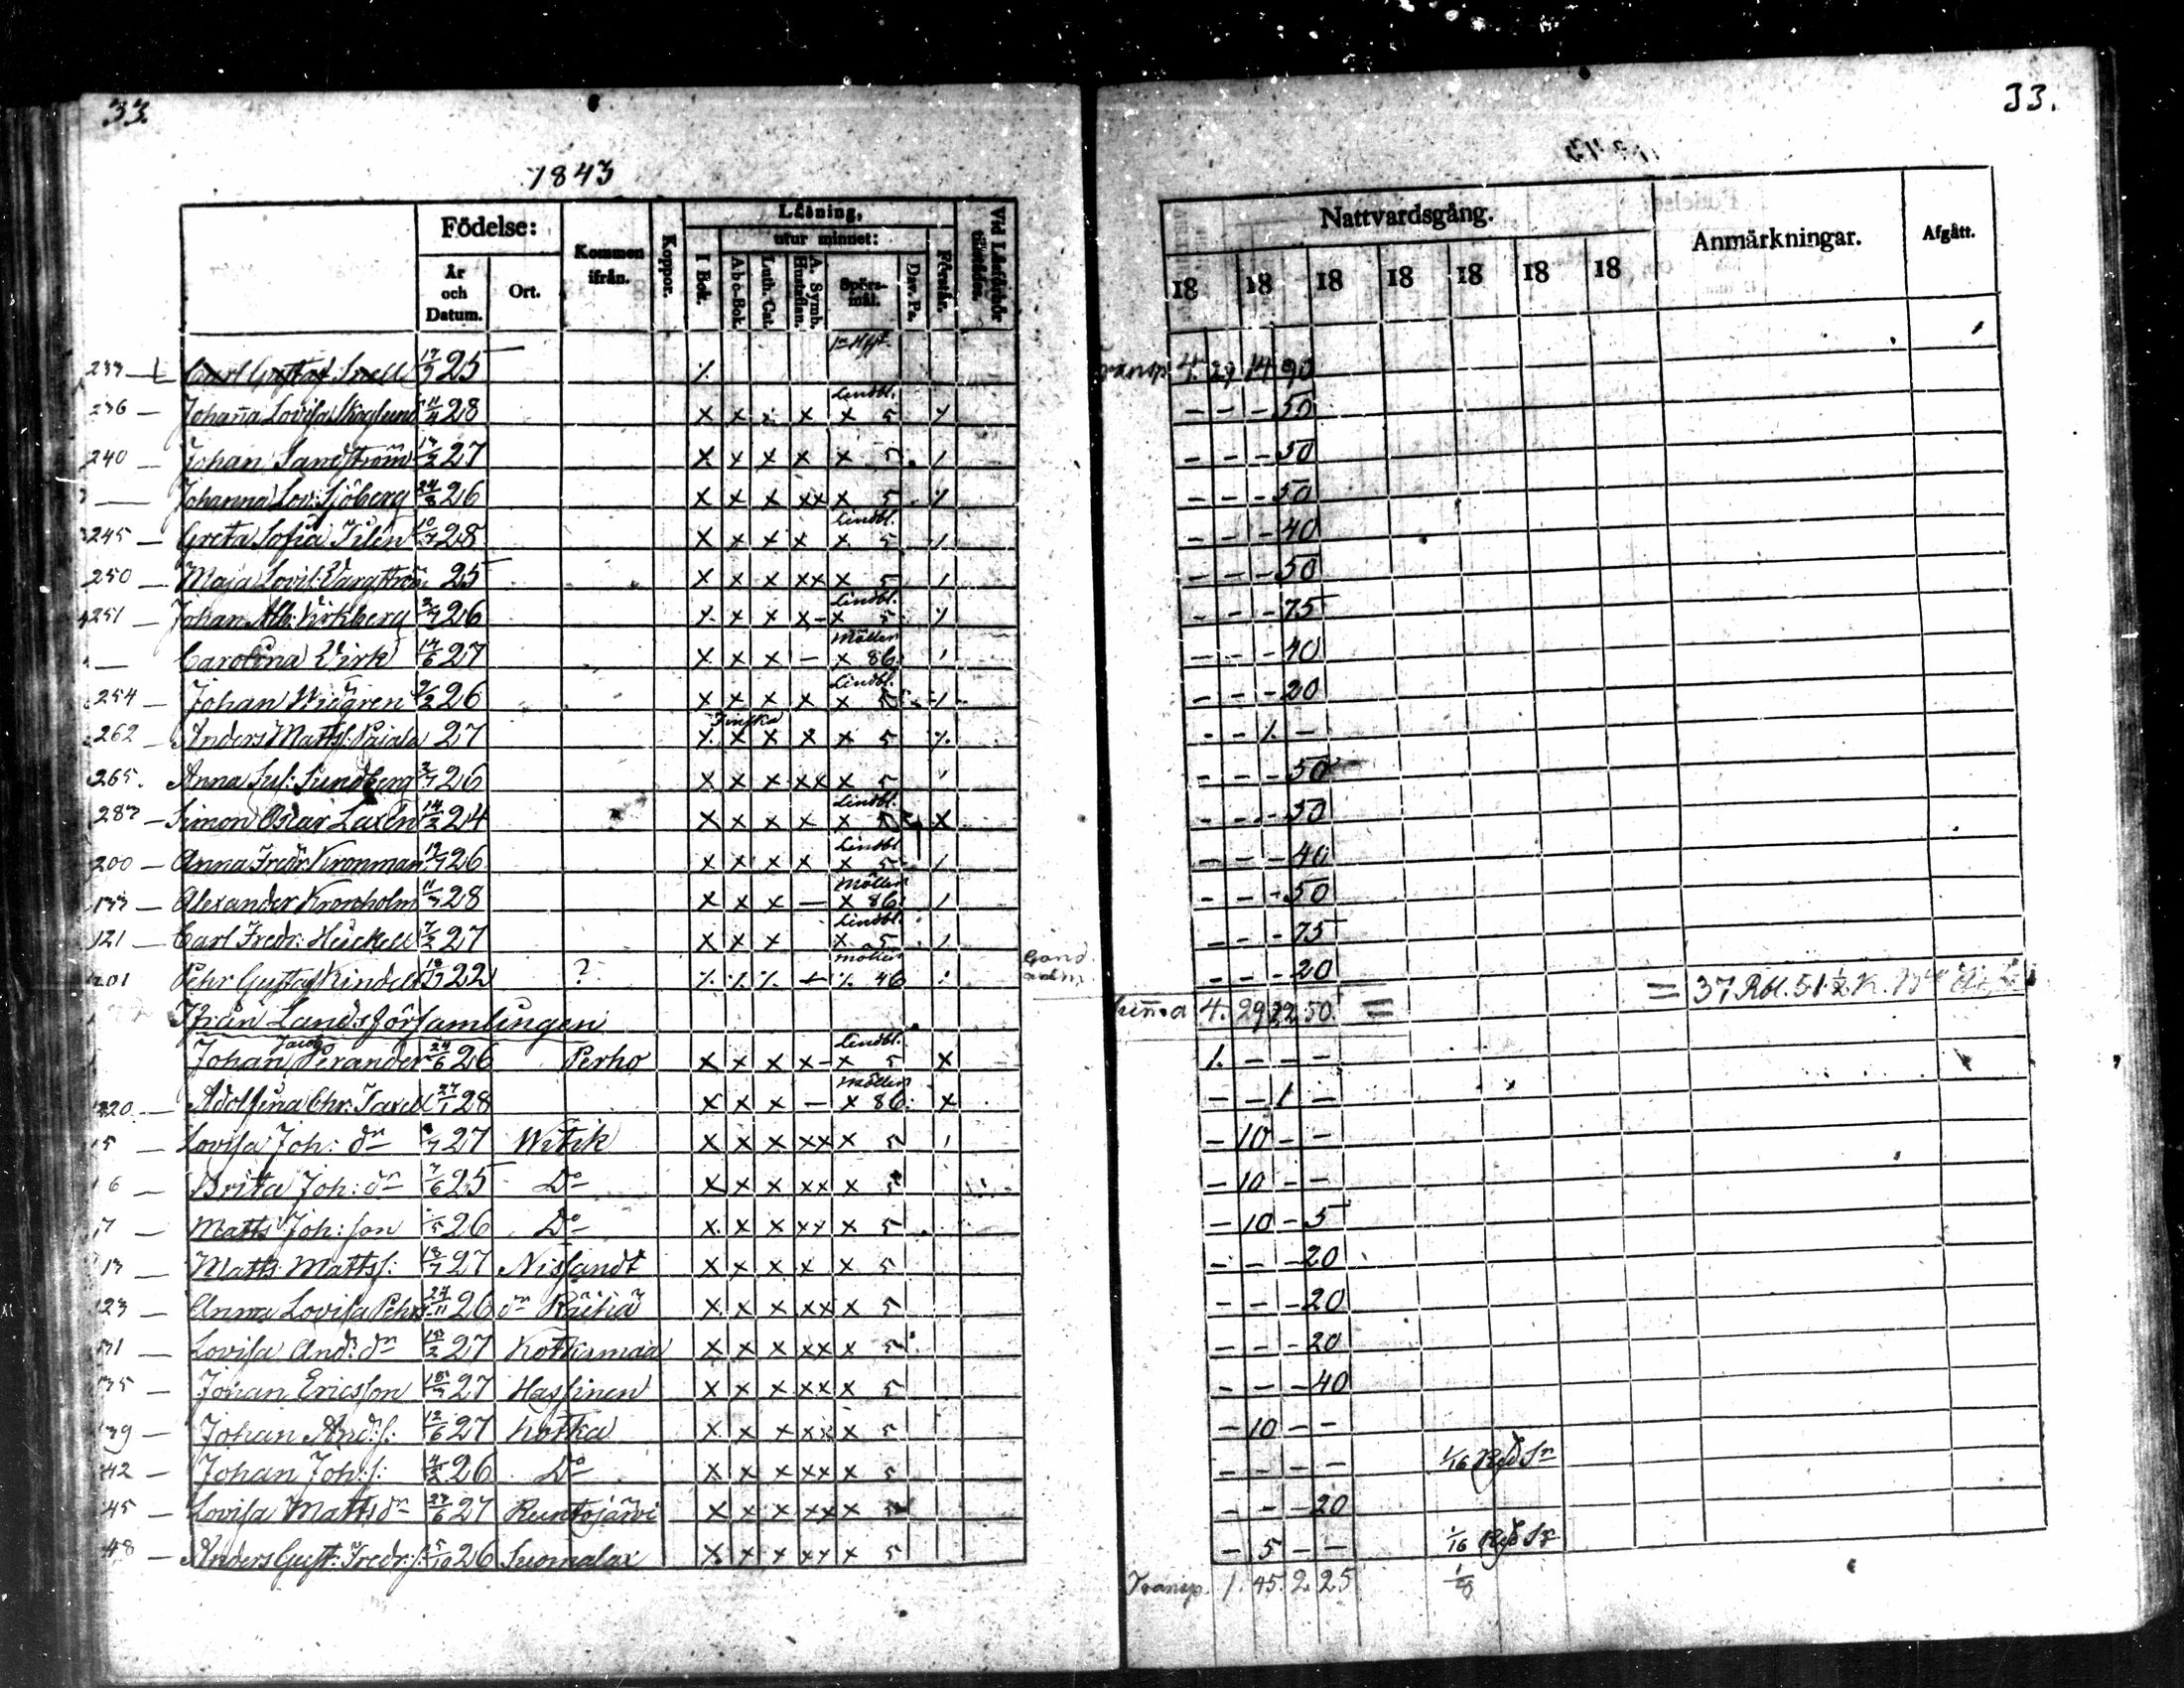 33.
1843
Födelse:
År och Datum.
Ort.
Kommen ifrån.
Koppor.
Läsning,
I Bok.
utur minnet:
Abc-Bok.
Luth. Cat.
A. Symb. Hustaflan.
Spörsmål.
Dav. Ps.
Förstår.
Vid Läsförhör tillstädes.
Carl Gustaf Snell 17/7 25
236 — Johanna Lovisa Skoglund 11/4 28 x x x x Lindbl. x 5
240 — Johan Sandström 27 x x x x x 5
Johanna Lov: Sjöberg 24/8 26 x x x xx x 5
245 — Greta Sofia 10/7 28 x x x x Lindbl. x 5
250 — Maja Lovis: 25 x x x xx x 5
251 — Johan Alb: Kirkberg 26 x x x x- Lindbl. x 5
Carolina Virk 14/6 27 x x x — Möller x 86
254 — Johan Widgren 9/2 26 x x x x Lindbl. x 5
262 — Anders Matts: Paiala 27 Finska x x x x 5
265. Anna Sus: Sundberg 3/7 26 x x x xx x 5
Simon Oscar Laxén 14/2 24 x x x x Lindbl. x 5 x
200 — Anna Fredr: Kronman 26 x x x x Lindbl. x 5
133 — Alexander Kronholm 11/7 28 x x x — Möller x 86
121 — Carl Fredr: Heickell 7/2 27 x x x Lindbl. x 5
201 Pehr Gustaf Rindell 22 ? Möller 46
Ifrån Landsförsamlingen
Johan Jacob Perander 24/6 26 Perho x x x x- Lindbl. x 5 x
Adolfina Chr: 27/1 28 x x x — Möller x 86 x
5 Lovisa Joh: dr 27 Witik x x x xx x 5
6 — Brita Joh: dr 7/6 25 Do x x x xx x 5
7 — Matts Joh: son 26 Do x x x xx x 5
13 — Matts Matts: 27 Nissandt x x x x x 5
23 — Anna Lovisa Pehrs 26 dr Räihä x x x xx x 5
31 — Lovisa And: dr 27 Kotkamaa x x x xx x 5
35 — Johan Ericsson 27 Hassinen x x x xx x 5
39 — Johan And: s: 12/6 27 Kotka x x x xx x 5
42 — Johan Joh: s: 4/2 26 Do x x x xx x 5
45 — Lovisa Matts dr 27/6 27 Runtojärvi x x x xx x 5
48 — Anders Gust: Fredr: s: 5/10 26 Suomalax x x x xx x 5
33.
Nattvardsgång.
18 18 18 18 18 18 18
Anmärkningar.
Afgått.
Transp. 4. 29 14 90
— — — 50
— — — 50
— — — 50
— — — 40
— — — 50
— — — 75
— — — 40
— — — 20
— — 1. —
— — — 50
— — — 50
— — — 40
— — — 50
— — — 75
— — — 20
Summa 4. 29 22 50 = = 37 Rbl. 51 1/2 K.
1. — — —
— — 1 —
— 10 — —
— 10 — —
— 10 — 5
— — — 20
— — — 20
— — — 20
— — — 40
— 10 — —
— — — — 1/16
— — — 20
— 5 — — 1/16
Transp. 1. 45. 2. 25 1/8